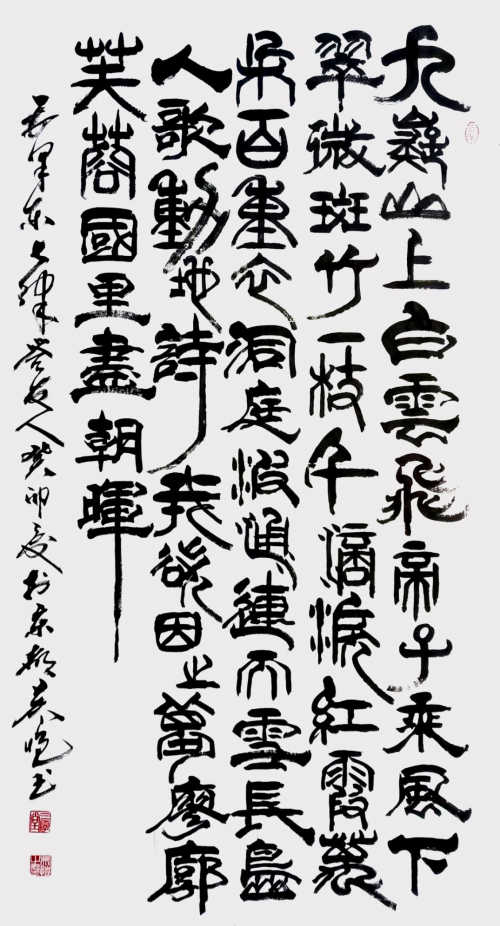 九嶷山上白雲飛帝子乘風下
翠微斑竹一枝千滴淚紅霞萬
朵百重衣洞庭波涌連天雪長島
人歌動地詩我欲因之夢廖廓
芙蓉國里盡朝暉
毛澤东七律答友人癸卯夏於京都